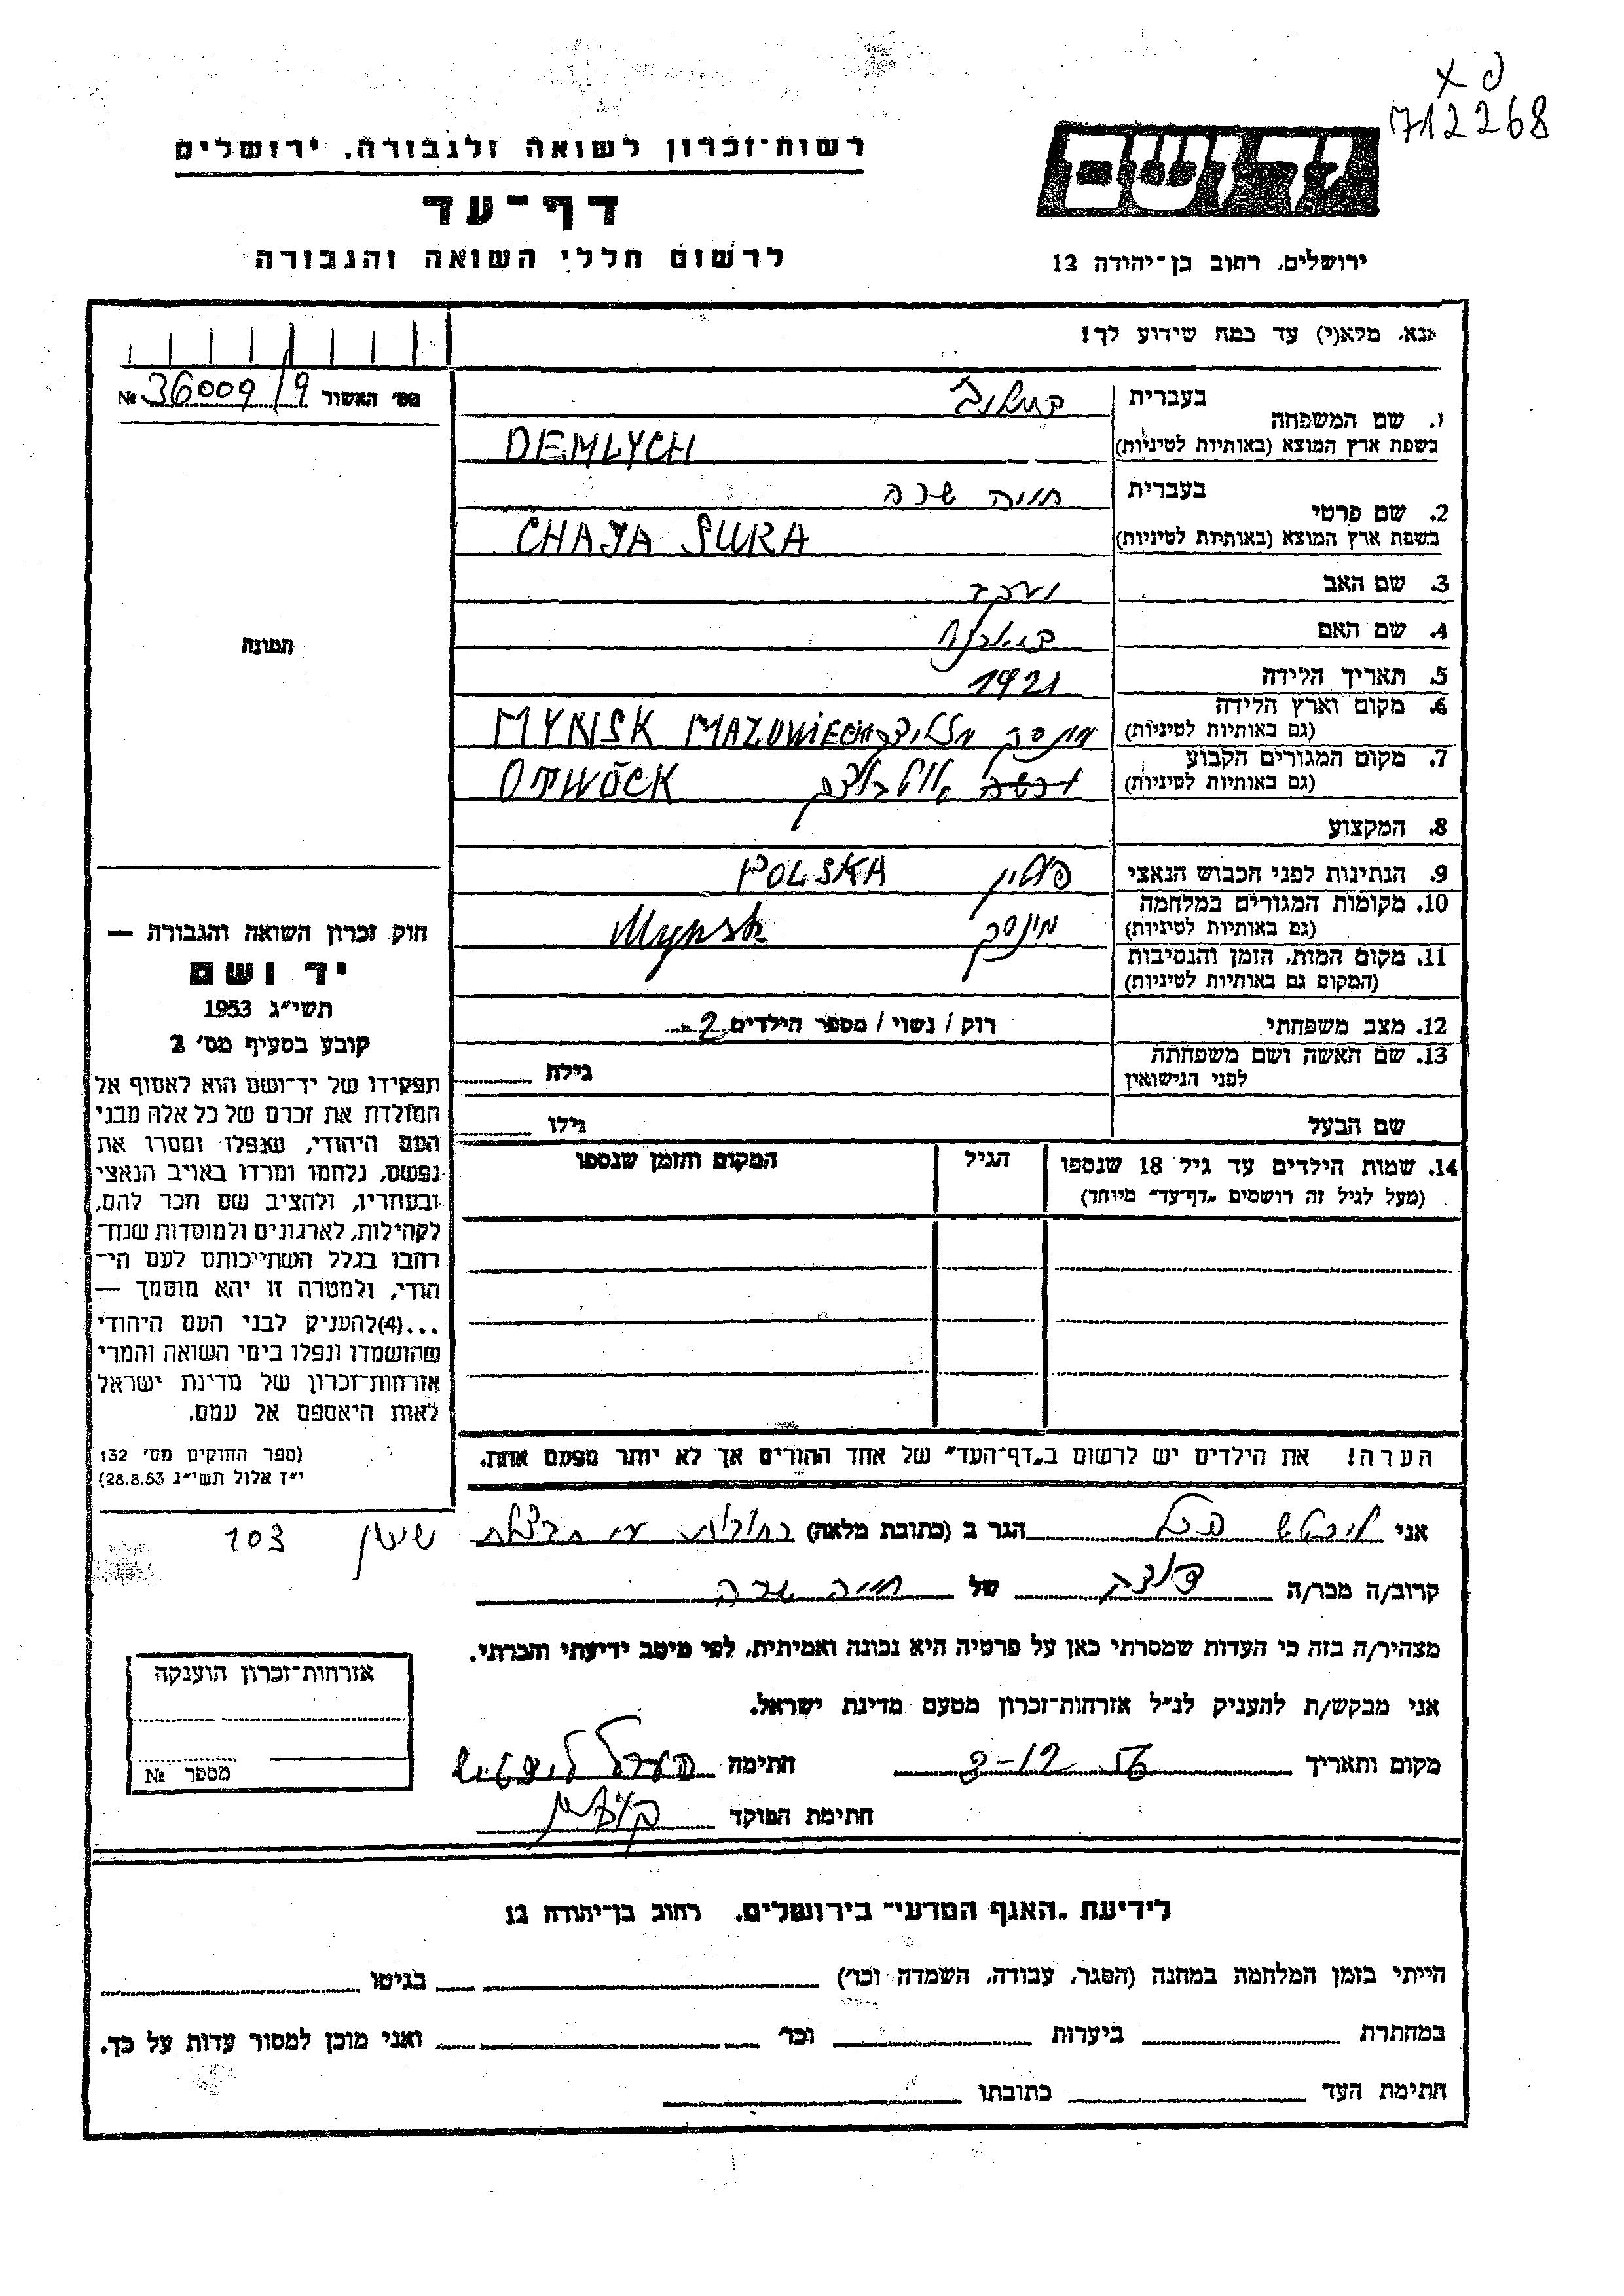 712268
רשות־זכרון לשואה ולגבורה, ירושלים
דף־עד
לרשום חללי השואה והגבורה
ידושם
ירושלים, רחוב בן־יהודה 12
נא, מלא(י) עד כמה שידוע לך!
מס׳ האשור 36009/9 №
1. שם המשפחה
בעברית
בשפת ארץ המוצא (באותיות לטיניות) DEMLYCH
2. שם פרטי
בעברית חיה שרה
בשפת ארץ המוצא (באותיות לטיניות) CHAJA SURA
3. שם האב
4. שם האם
5. תאריך הלידה 1921
6. מקום וארץ הלידה
(גם באותיות לטיניות) מינסק MYNSK
7. מקום המגורים הקבוע
(גם באותיות לטיניות) OTWOCK
8. המקצוע
9. הנתינות לפני הכבוש הנאצי פולין POLSKA
10. מקומות המגורים במלחמה
(גם באותיות לטיניות) מינסק Mynsk
11. מקום המות, הזמן והנסיבות
(המקום גם באותיות לטיניות)
12. מצב משפחתי רוק / נשוי / מספר הילדים 2
13. שם האשה ושם משפחתה
לפני הנישואין גילה
שם הבעל גילו
14. שמות הילדים עד גיל 18 שנספו
(מעל לגיל זה רושמים „דף־עד״ מיוחד)
הגיל
המקום והזמן שנספו
הערה! את הילדים יש לרשום ב„דף־העד״ של אחד ההורים אך לא יותר מפעם אחת.
תמונה
חוק זכרון השואה והגבורה —
יד ושם
תשי״ג 1953
קובע בסעיף מס׳ 2
תפקידו של יד־ושם הוא לאסוף אל
המולדת את זכרם של כל אלה מבני
העם היהודי, שנפלו ומסרו את
נפשם, נלחמו ומרדו באויב הנאצי
ובעוזריו, ולהציב שם וזכר להם,
לקהילות, לארגונים ולמוסדות שנח־
רבו בגלל השתייכותם לעם הי־
הודי, ולמטרה זו יהא מוסמך —
...(4)להעניק לבני העם היהודי
שהושמדו ונפלו בימי השואה והמרי
אזרחות־זכרון של מדינת ישראל
לאות היאספם אל עמם.
(ספר החוקים מס׳ 132
י״ז אלול תשי״ג 28.8.53)
אני הגר ב (כתובת מלאה)
שיכון 103
קרוב/ה מכר/ה של חיה שרה
מצהיר/ה בזה כי העדות שמסרתי כאן על פרטיה היא נכונה ואמיתית, לפי מיטב ידיעתי והכרתי.
אני מבקש/ת להעניק לנ״ל אזרחות־זכרון מטעם מדינת ישראל.
מקום ותאריך חתימה
חתימת הפוקד
אזרחות־זכרון הוענקה
מספר №
לידיעת „האגף המדעי״ בירושלים, רחוב בן־יהודה 12
הייתי בזמן המלחמה במחנה (הסגר, עבודה, השמדה וכו׳) בגיטו
במחתרת ביערות וכו׳ ואני מוכן למסור עדות על כך.
חתימת העד כתובתו